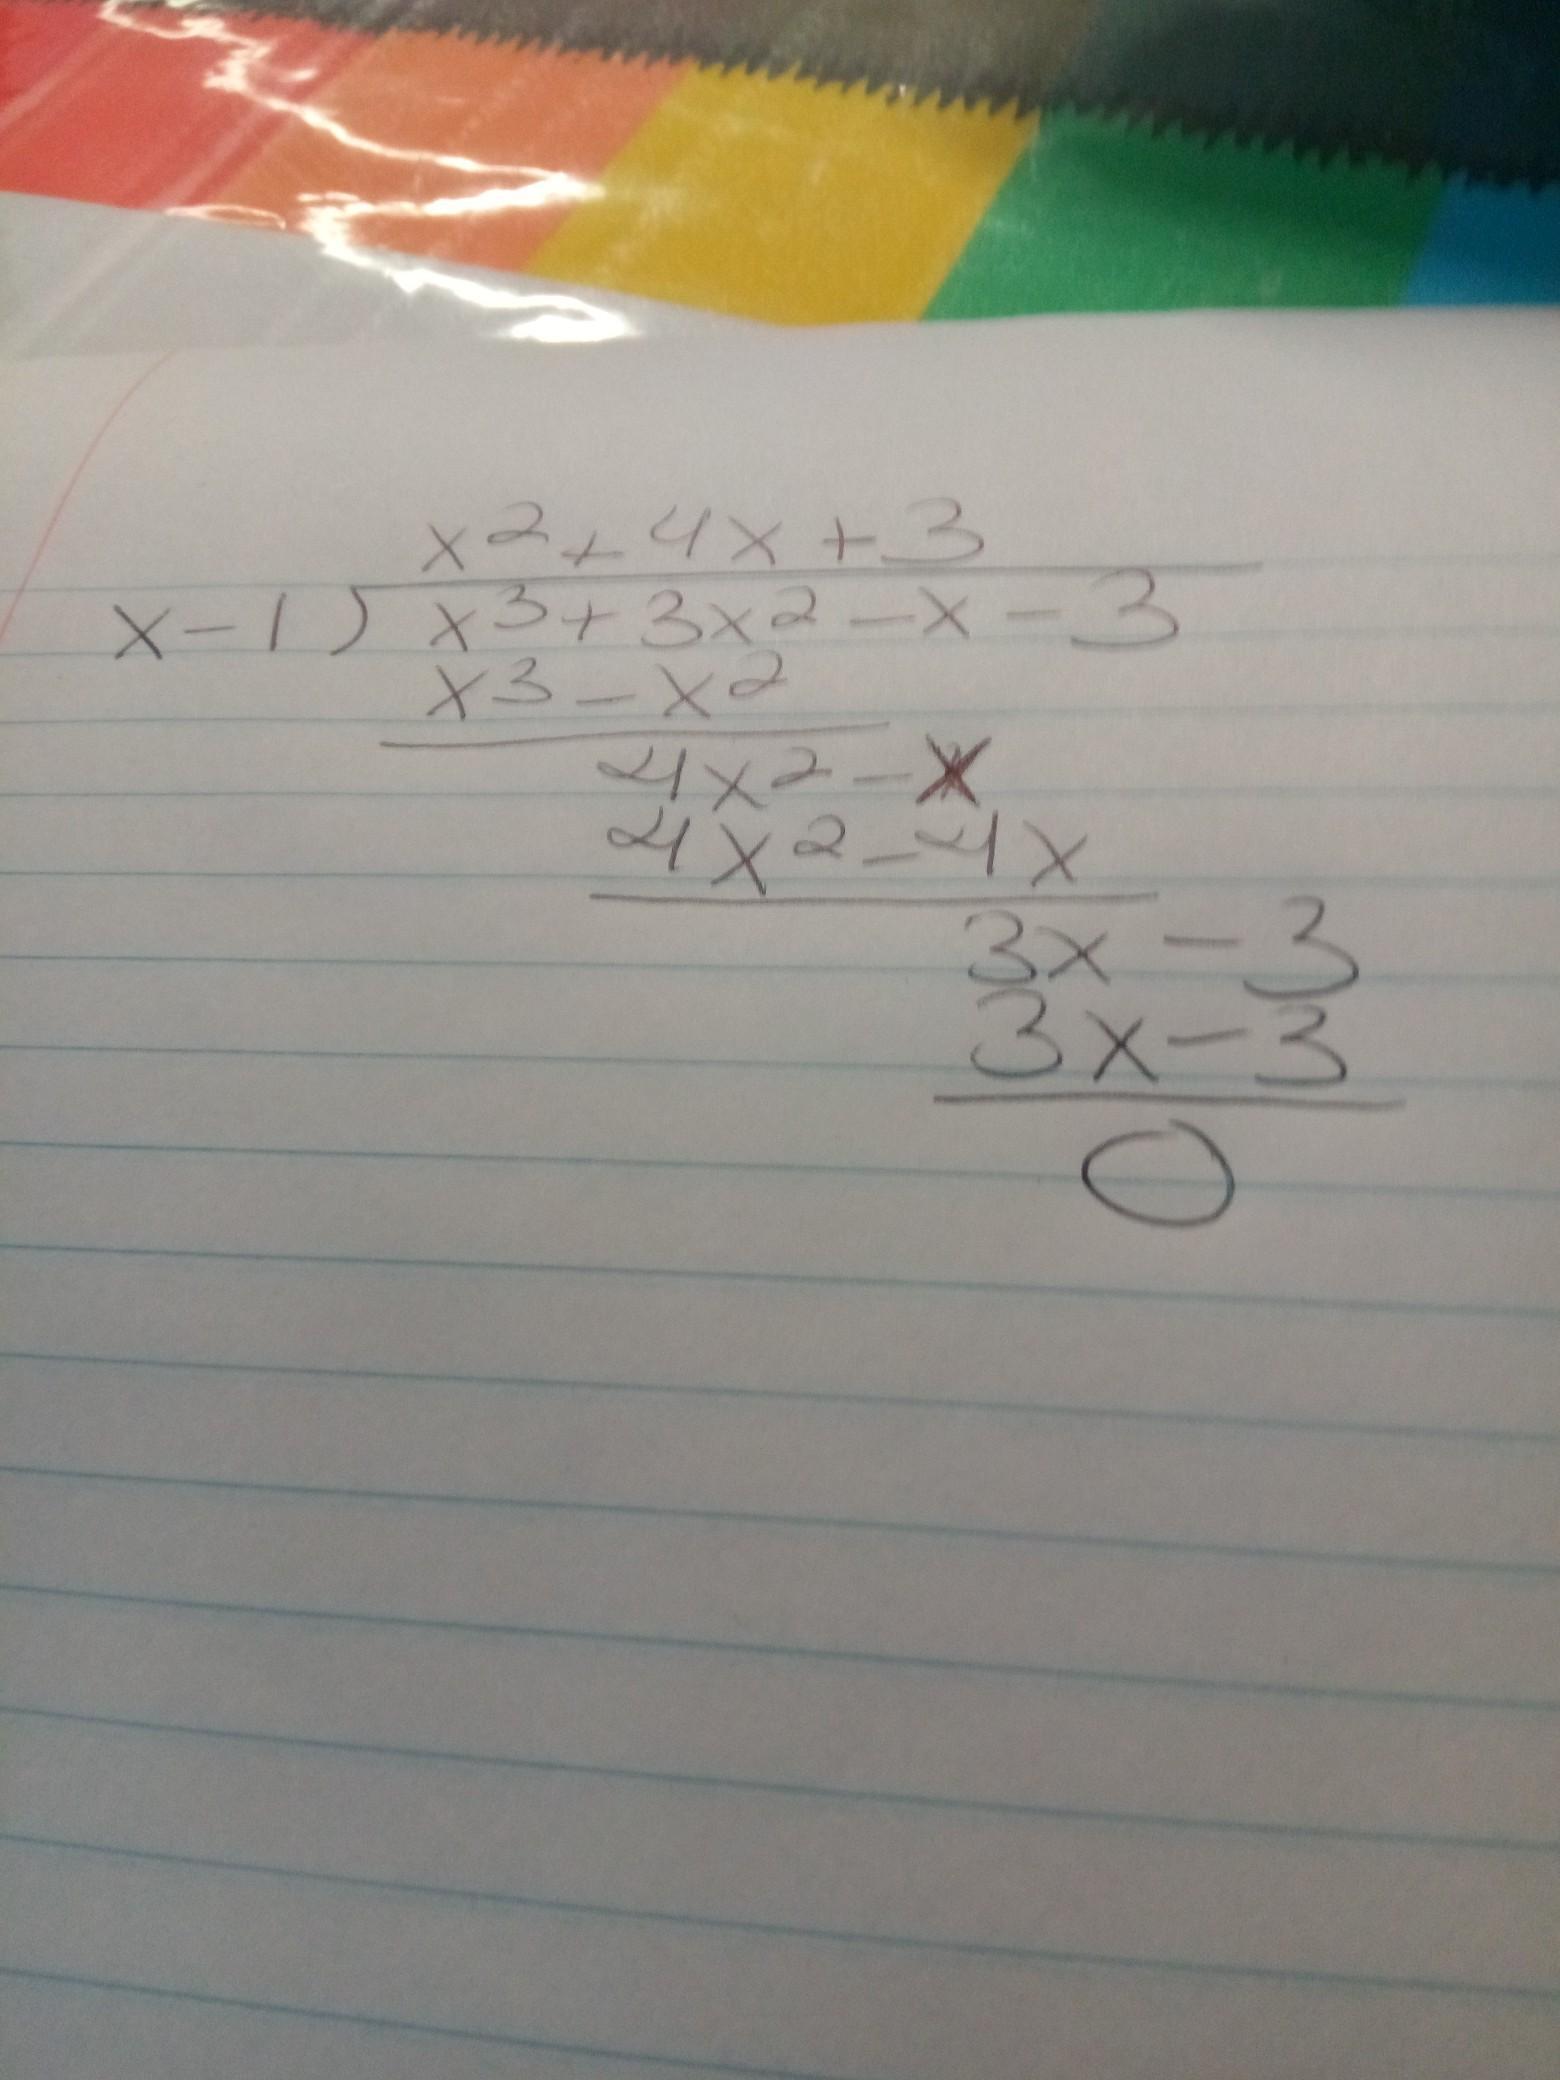 x² + 4x + 3
x - 1 ) x³ + 3x² - x - 3
x³ - x²
4x² - x
4x² - 4x
3x - 3
3x - 3
0